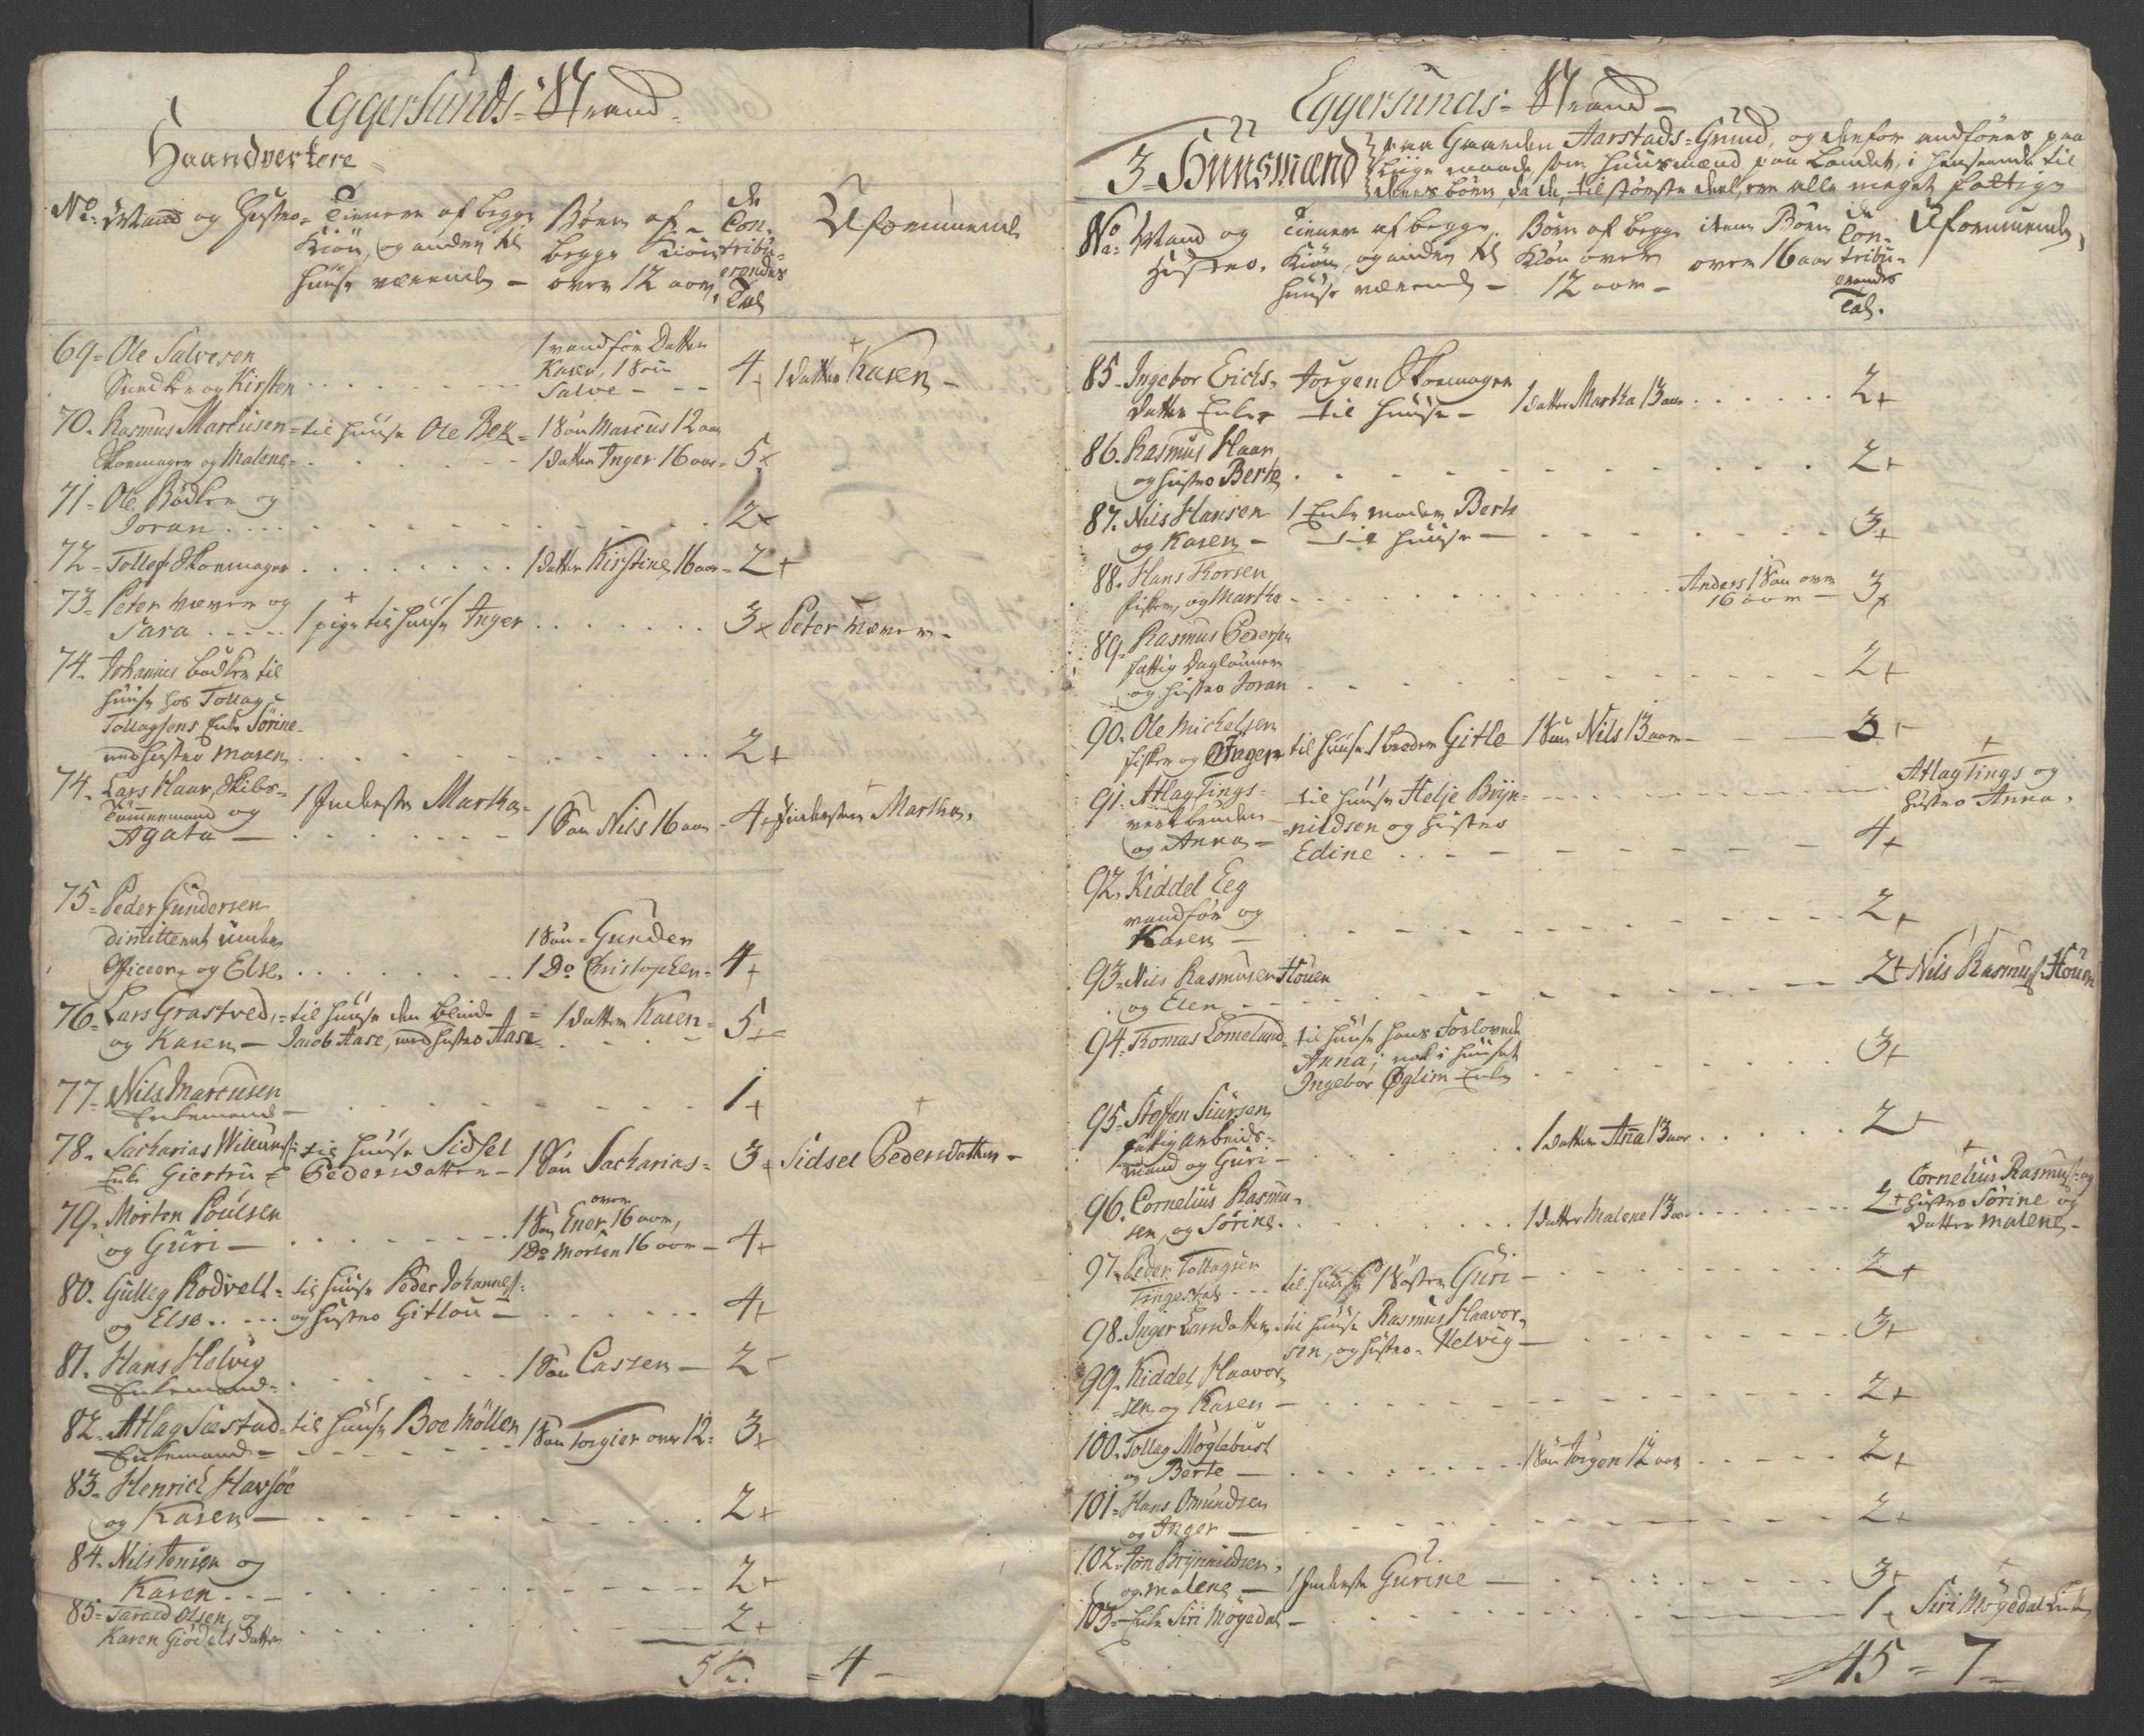 Eggersunds-Strand
Haandverkere
No. Mand og Hustro. Tienere af begge Kiön, og anden til huuse værende — Börn af begge Kiön over 12 aar, de Contribuerendes Tal Uformuende
69. Ole Salvesen 1 vandför Datter
Snedker og Kirsten Karen, 1 Sön Salve 4+ 1 Datter Karen
70. Rasmus Marcusen til huuse Ole Bek 1 Sön Marcus 12 aar
Skomager og Malene 1 Datter Inger 16 aar 5+
71. Ole Bödker og
Joran 2+
72. Tollef Skomager 1 datter Kirstine 16 aar 2+
73. Peter Væver og 1 pige til huuse Inger
Sara 3+ Peter Væver
74. Johannes bödker til
huuse hos Tollag
Tollagsens Enke Sörine
med hustro Maren 2+
74. Lars Haar, Skibs- 1 Inderste Martha
Tömmermand og 1 Sön Nils 16 aar 4+ Inderste Martha
Agata
75. Peder Gundersen
dimitteret under 1 Sön Gunder
Officeer, og Else 1 Do Christopher 4+
76. Lars Grastved til huuse den blinde 1 datter Karen 5+
og Karen Jacob Aase, med hustro Aase
77. Nils Marcusen 1+
Enkemand
78. Sacharias til huuse Sidsel 1 Sön Sacharias 3+ Sidsel Pedersdatter
Enke Giertru Pedersdatter
79. Morten Poulsen 1 Sön Ener over 16 aar,
og Guri 1 Do Morten 16 aar 4+
80. Gulleg Rodvelt til huuse Peder Johannes:
og Else og hustro Gitlou 4+
81. Hans Helvig 1 Sön Cassen 2+
Enkemand
82. Atlag Siestad til huuse Boe Möller 1 Sön Torgier over 12 3+
Enkemand
83. Henrich Havsöe
og Karen 2+
84. Nils Tonisen og
Karen 2+
85. Tarald Olsen, og 2+
Karen Giödelsdatter
= 4 —
Eggersunds-Strand
3. Huusmænd paa Gaarden Aarstads-Grund, og derfor andföres paa
liige maade, som huusmænd paa Landet, i henseende til
deres börn, da de, til störste deel, ere alle meget fattige
No. Mand og Hustro. Tienere af begge Kiön, og anden til huuse værende — Börn af begge Kiön over 12 aar — item Börn over 16 aar de Contribuerendes Tal. Uformuende
85. Ingebor Erichs- Torgen Skomager
datter Enke til huuse 1 datter Martha 13 aar 2+
86. Rasmus Haar
og hustro Berte 2+
87. Nils Hansen 1 Enke moder Berte
og Karen til huuse 3+
88. Hans Torsen Anders 1 Sön over
fisker, og Martha 16 aar 3+
89. Rasmus Pedersen
fattig Daglönner 2+
og hustro Joran
90. Ole Michelsen
fisker og Inger til huuse 1 broder Gitle 1 Sön Nils 13 aar 3+
91. Atlag Tings- til huuse Helje Bryn- Atlag Tings og
nildsen og hustro hustro Anna
og Anna Edine 4+
92. Kiddel Eeg
vandför og 2+
Karen
93. Nils Rasmusen Houen 2+ Nils Rasmus: Houen
og Elen
94. Tomas Lomeland til huuse hans Forlovede
Anna; nok i huuset 3+
Ingebor Øglim Enke
95. Steffen Siursen
fattig arbeids- 1 datter Anna 13 aar 2+
mand og Guri
96. Cornelius Rasmu- 1 datter Malene 13 aar 2+ Cornelius Rasmus: og
sen, og Sörine hustro Sörine og
datter Malene
97. Peder Tollagsen til huuse 1 Söster Guri 2+
98. Inger Larsdatter til huuse Rasmus Haavor-
sen, og hustro Helvig 3+
99. Kiddel Haavor-
sen, og Karen 2+
100. Tollag Möglebust
og Berte 1 Sön Torgen 12 aar 2+
101. Hans Omundsen
og Inger 2+
102. Jon Brynnildsen
og Malene 1 Inderste Gurine 3+
103. Enke Siri Mögedal 1+ Siri Mögedal Enke
45 = 7